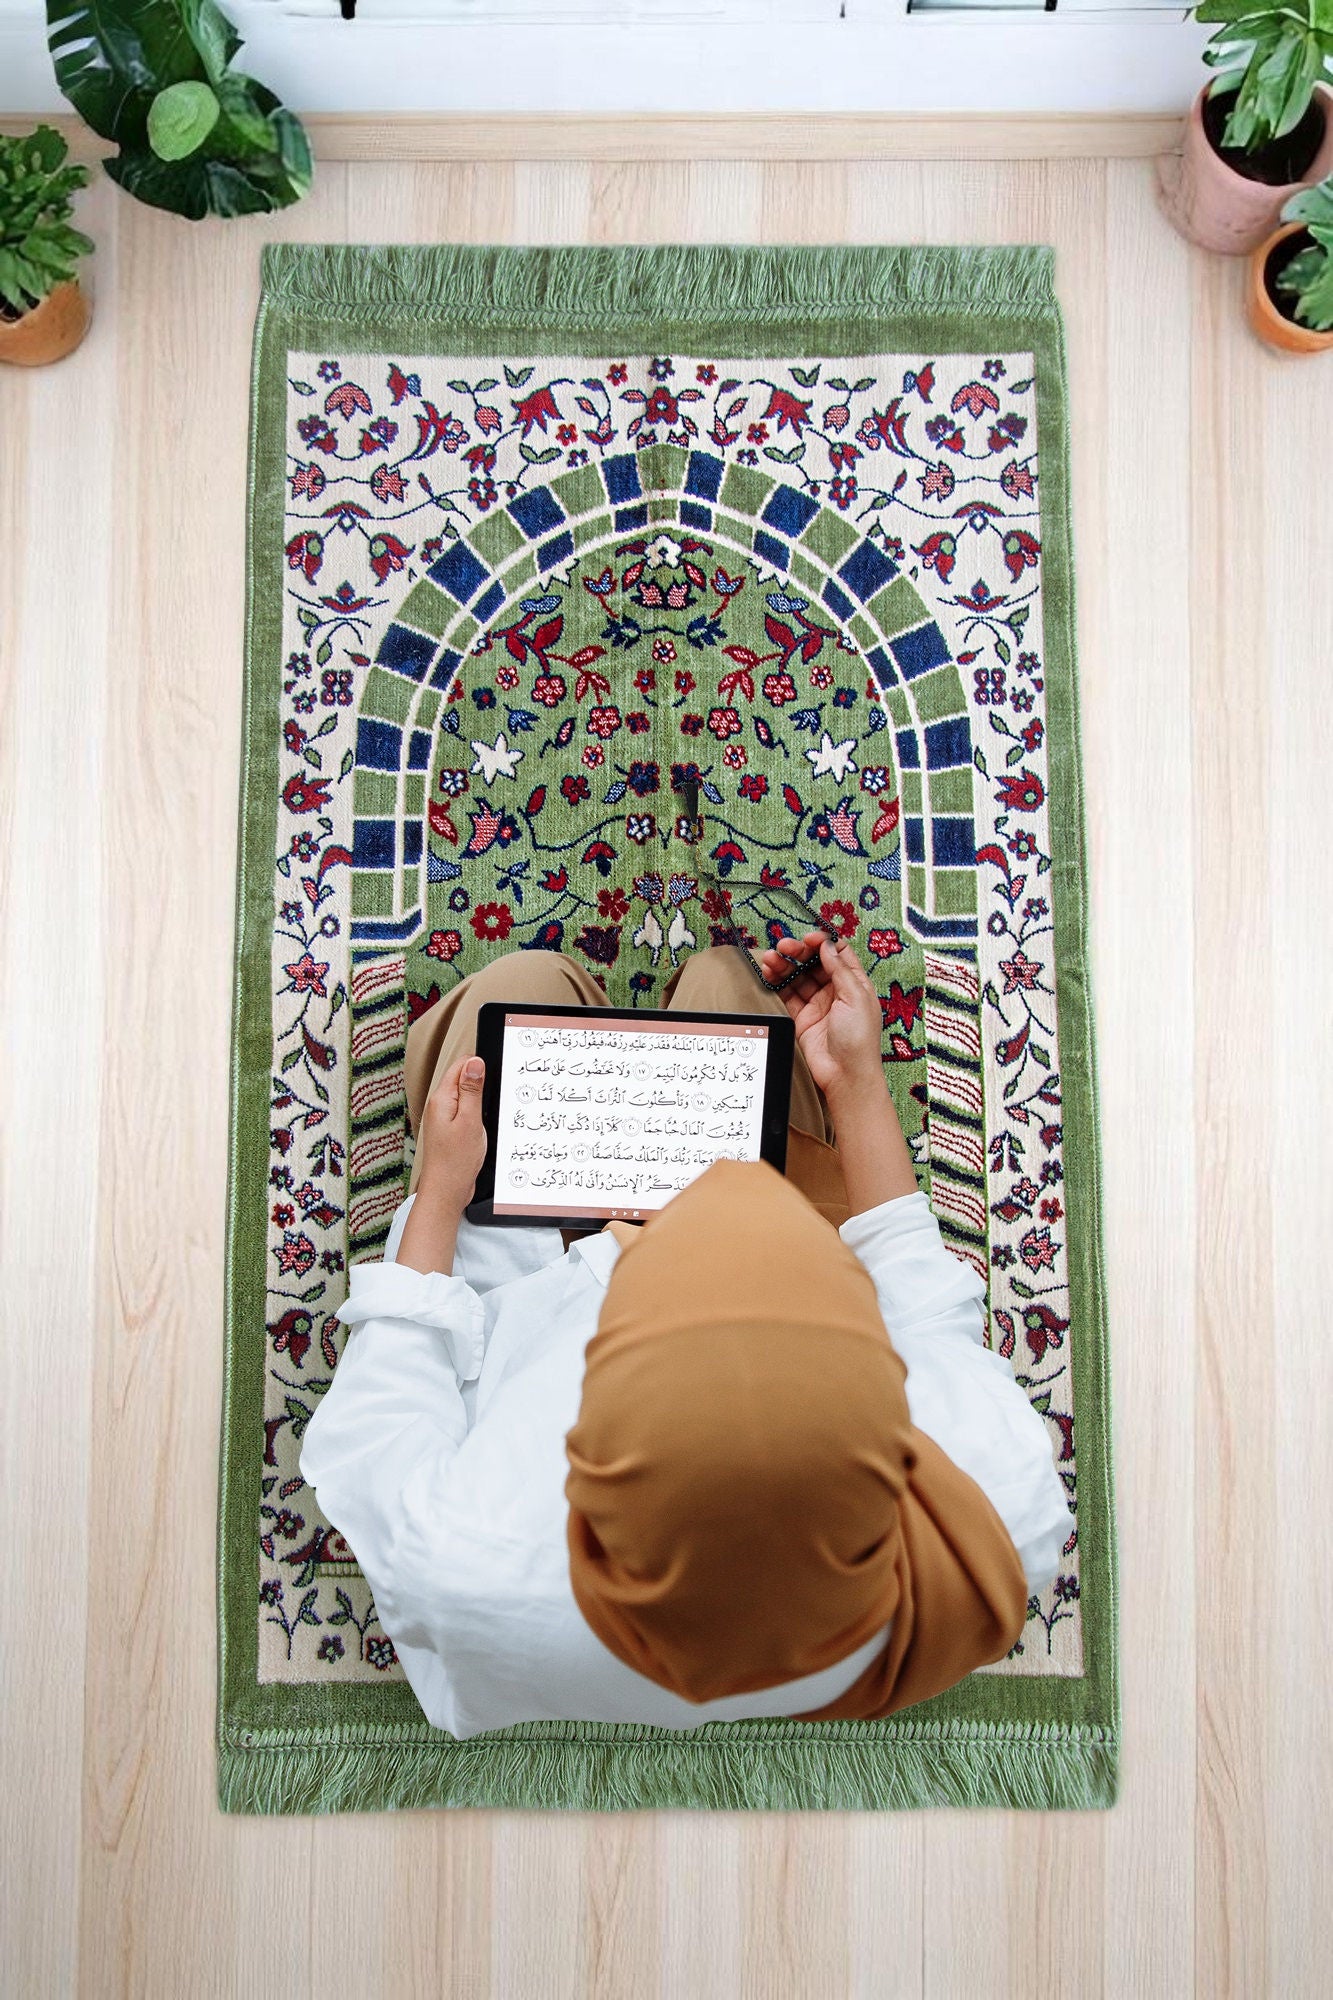 ١٥ وَأَمَّا إِذَا مَا ٱبْتَلَىٰهُ فَقَدَرَ عَلَيْهِ رِزْقَهُۥ فَيَقُولُ رَبِّىٓ أَهَٰنَنِ ١٦
كَلَّا ۖ بَل لَّا تُكْرِمُونَ ٱلْيَتِيمَ ١٧ وَلَا تَحَٰٓضُّونَ عَلَىٰ طَعَامِ
ٱلْمِسْكِينِ ١٨ وَتَأْكُلُونَ ٱلتُّرَاثَ أَكْلًا لَّمًّا ١٩
وَتُحِبُّونَ ٱلْمَالَ حُبًّا جَمًّا ٢٠ كَلَّآ إِذَا دُكَّتِ ٱلْأَرْضُ دَكًّا
دَكًّا ٢١ وَجَآءَ رَبُّكَ وَٱلْمَلَكُ صَفًّا صَفًّا ٢٢ وَجِا۟ىٓءَ يَوْمَئِذٍۭ
يَتَذَكَّرُ ٱلْإِنسَٰنُ وَأَنَّىٰ لَهُ ٱلذِّكْرَىٰ ٢٣